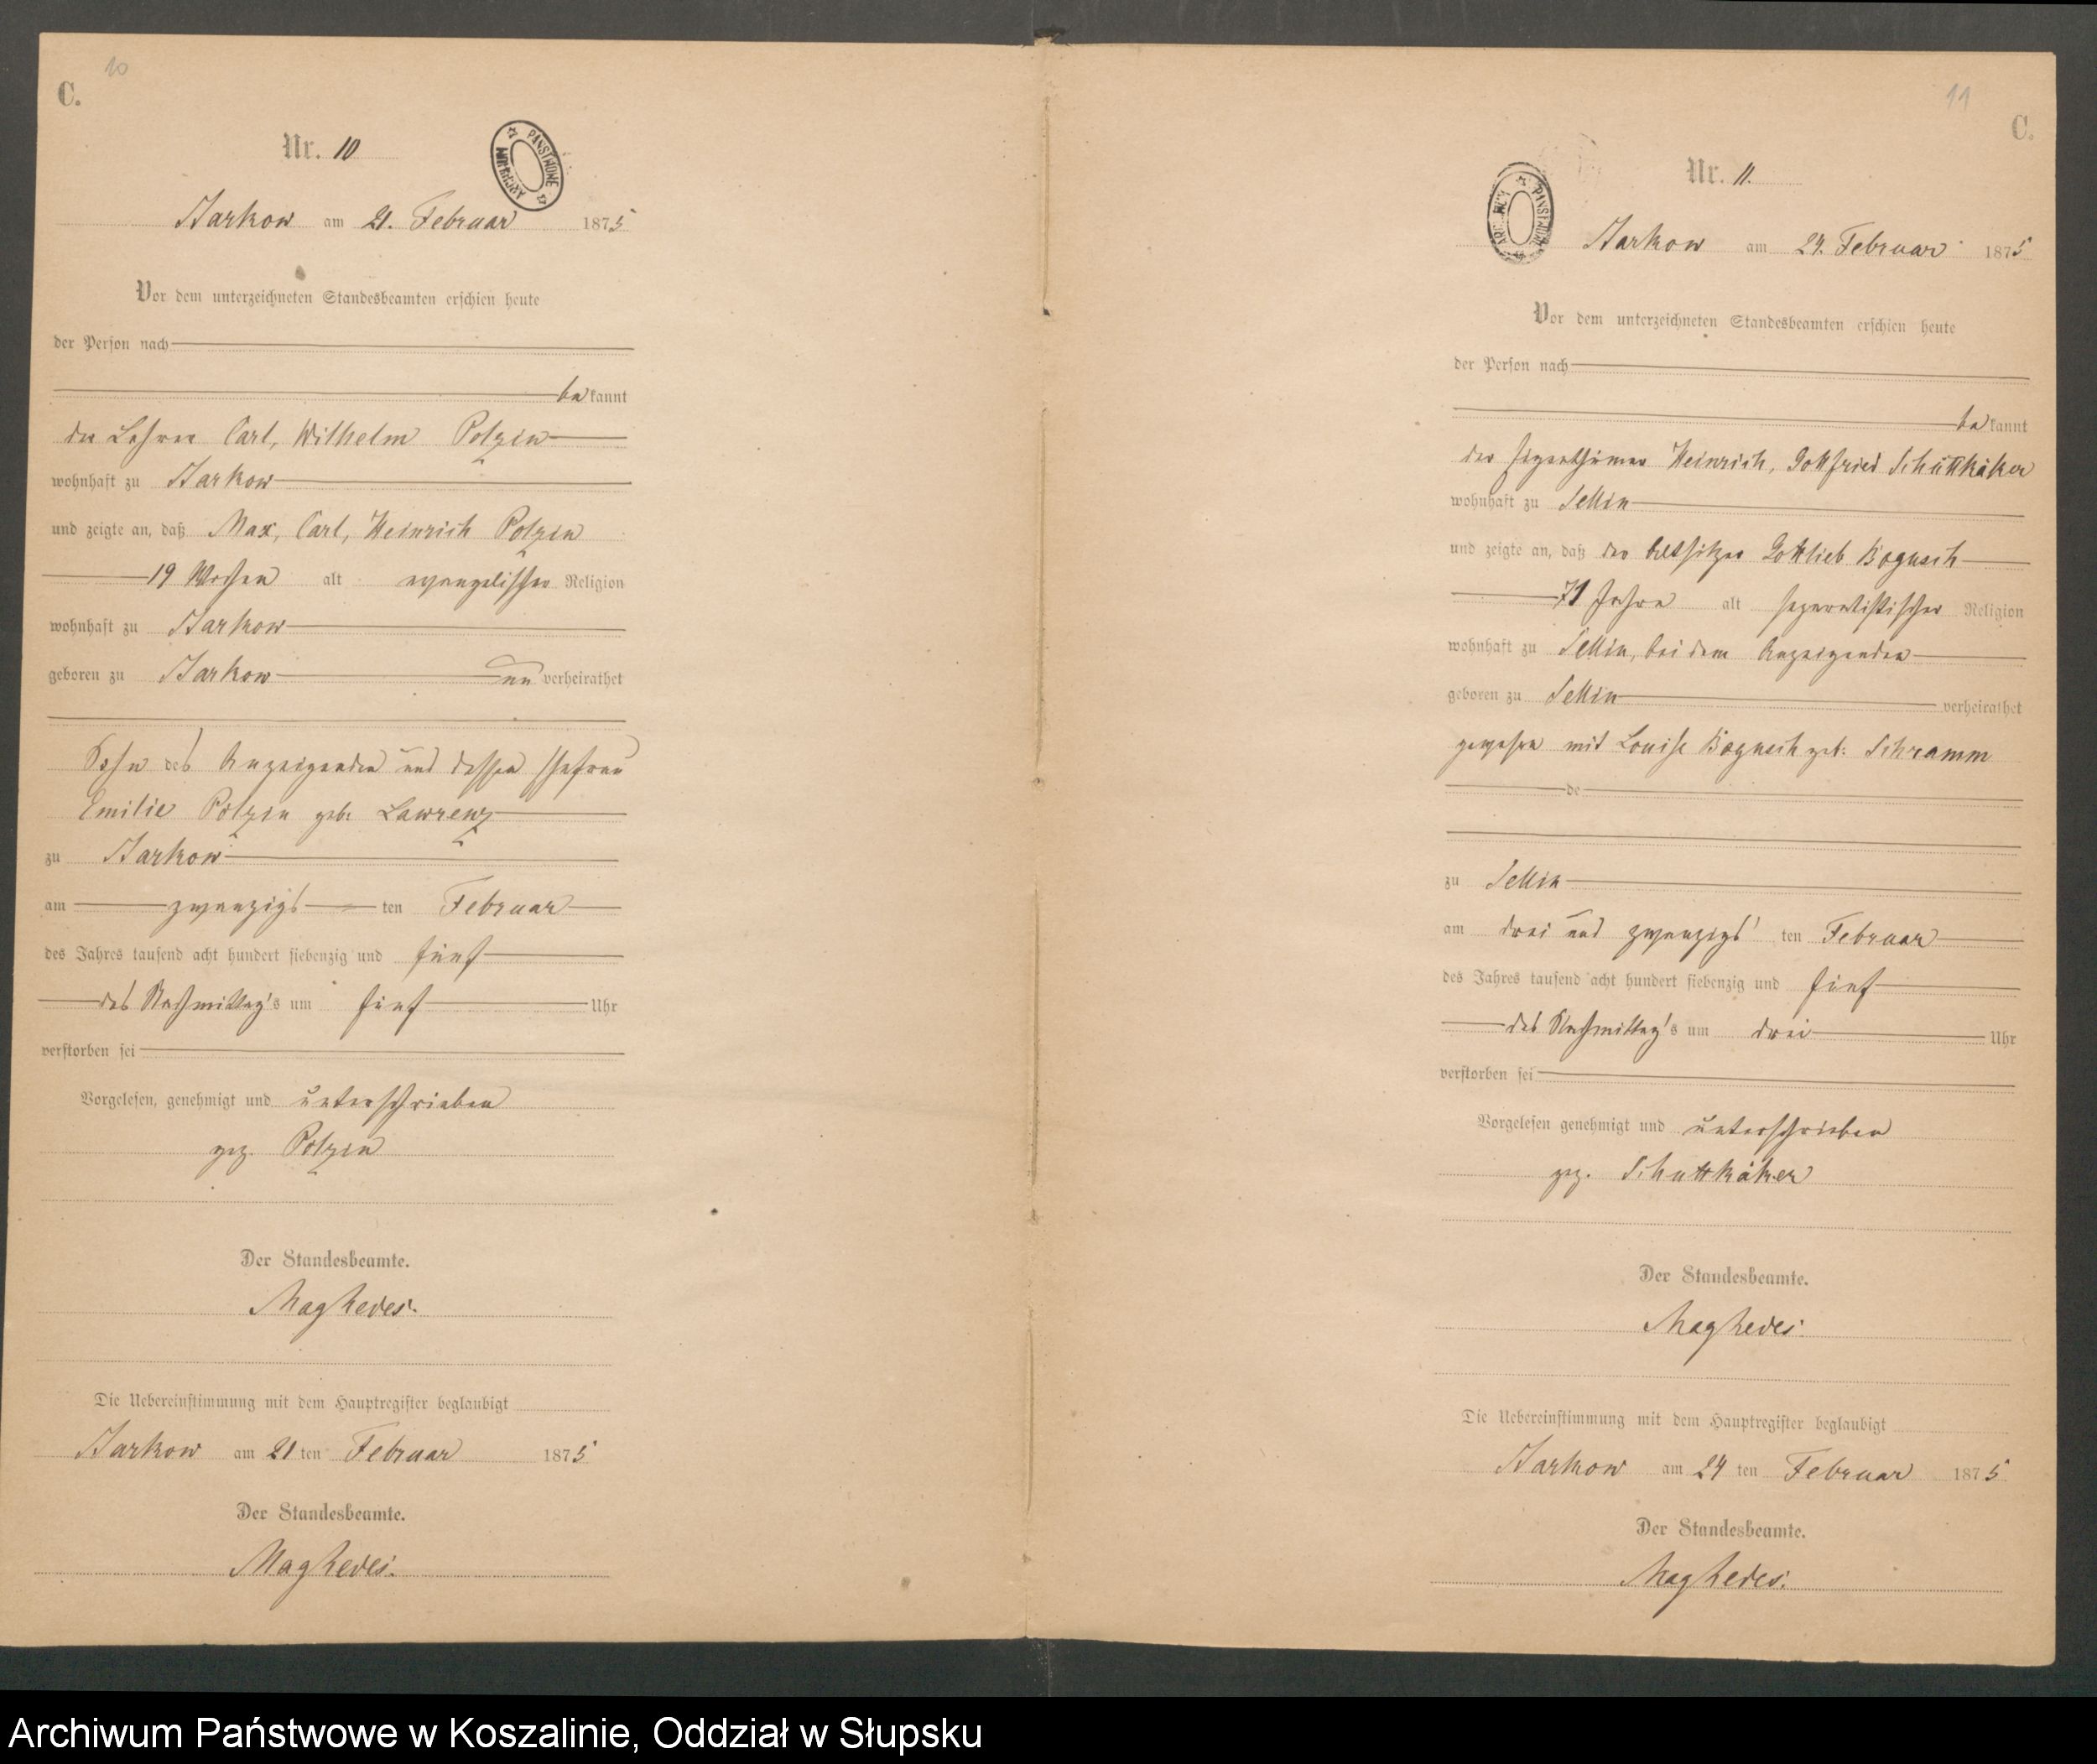 10
C.
Nr. 10
ARCHIWUM PAŃSTWOWE
Starkow am 21. Februar 1875
Vor dem unterzeichneten Standesbeamten erschien heute
der Person nach
bekannt
der Lehrer Carl, Wilhelm Polzin
wohnhaft zu Starkow
und zeigte an, daß Max, Carl, Heinrich Polzin
19 Wochen alt evangelischer Religion
wohnhaft zu Starkow
geboren zu Starkow unverheirathet
Sohn des Anzeigenden und dessen Ehefrau
Emilie Polzin geb. Lawrenz
zu Starkow
am zwanzigsten Februar
des Jahres tausend acht hundert siebenzig und fünf
des Nachmittag's um fünf Uhr
verstorben sei
Vorgelesen, genehmigt und unterschrieben
gez. Polzin
Der Standesbeamte.
Die Uebereinstimmung mit dem Hauptregister beglaubigt
Starkow am 21 ten Februar 1875
Der Standesbeamte.
11
C.
Nr. 11.
ARCHIWUM PAŃSTWOWE
Starkow am 24. Februar 1875
Vor dem unterzeichneten Standesbeamten erschien heute
der Person nach
bekannt
der Eigenthümer Heinrich, Gottfried Schüttkäker
wohnhaft zu Sellin
und zeigte an, daß der Altsitzer Gottlieb Bogusch
71 Jahre alt separatistischer Religion
wohnhaft zu Sellin, bei dem Anzeigenden
geboren zu Sellin verheirathet
gewesen mit Louise Bogusch geb. Schramm
de
zu Sellin
am drei und zwanzigsten Februar
des Jahres tausend acht hundert siebenzig und fünf
des Nachmittag's um drei Uhr
verstorben sei
Vorgelesen genehmigt und unterschrieben
gez. Schuttkäker
Der Standesbeamte.
Die Uebereinstimmung mit dem Hauptregister beglaubigt
Starkow am 24 ten Februar 1875
Der Standesbeamte.
Archiwum Państwowe w Koszalinie, Oddział w Słupsku